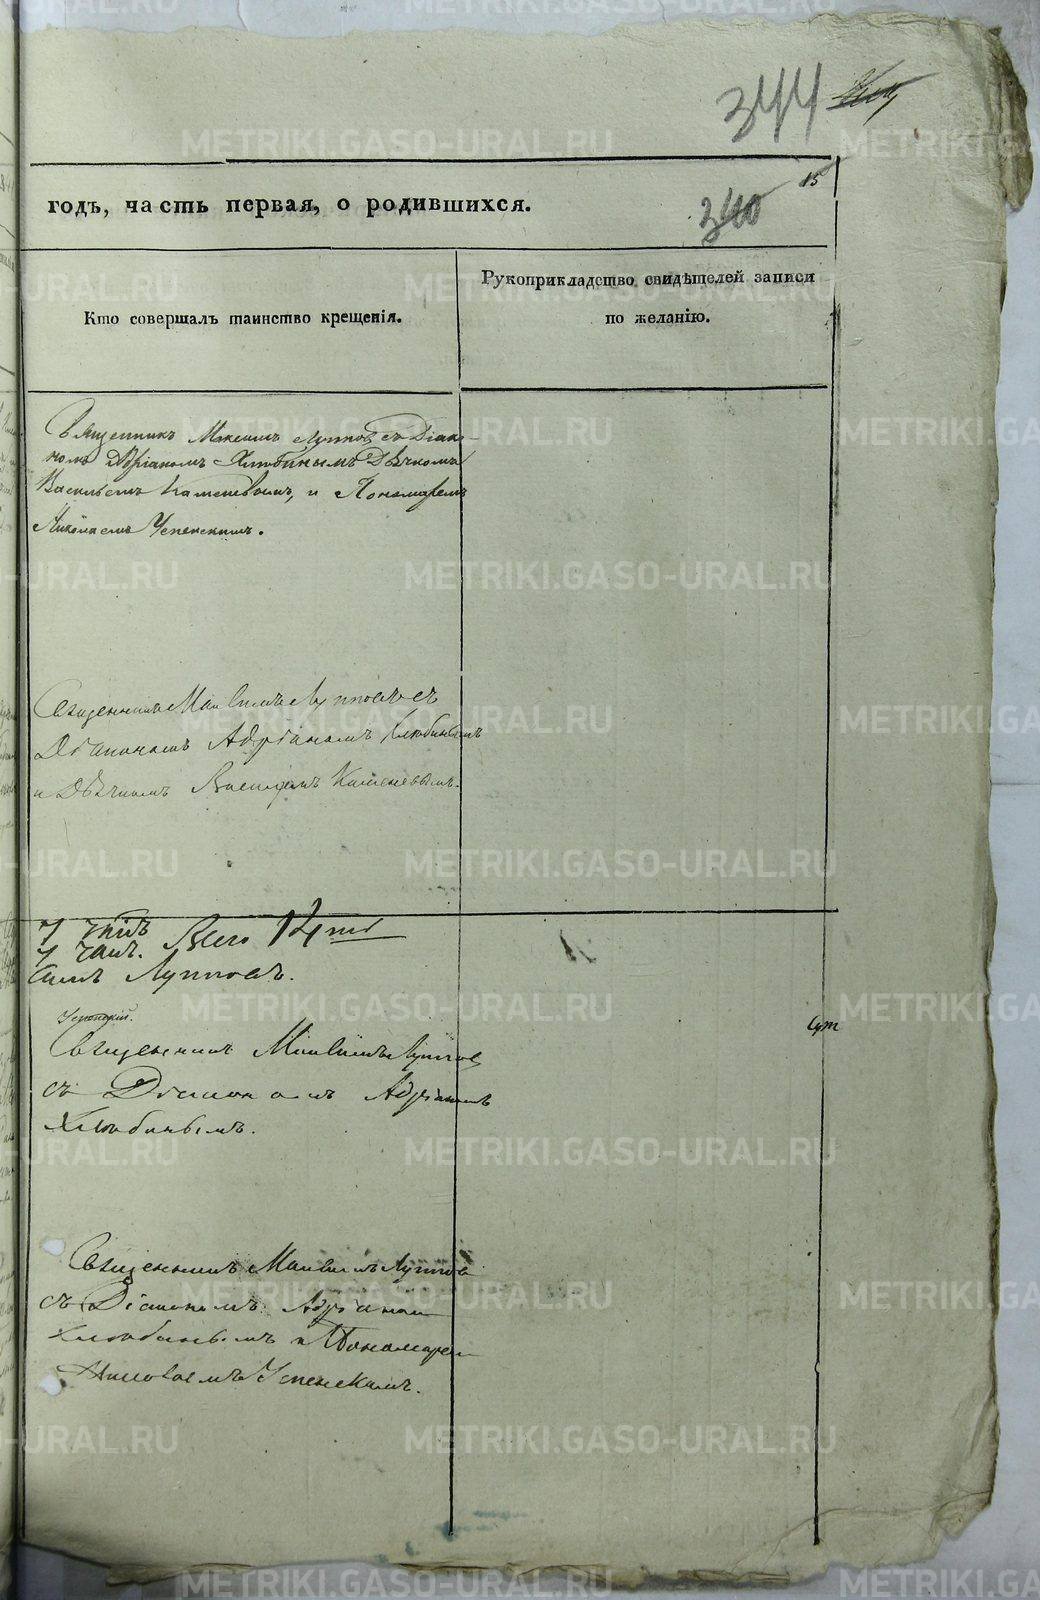 344
15
340
годъ, часть первая, о родившихся.
Кто совершалъ таинство крещенія.
Рукоприкладство свидѣтелей записи
по желанію.
Священникъ Максимъ Луппов съ Діако-
номъ Адріаномъ Хлюбинымъ Дьячкомъ
Васильемъ Каменевымъ, и Пономаремъ
Николаемъ Успенскимъ.
Священникъ Максимъ Лупповъ съ
Діакономъ Адріаномъ Хлюбинымъ
и Дьячкомъ Васильемъ Каменевымъ.
7
7 Всего 14
симъ Лупповъ.
Успенскій.
Священникъ Максимъ Луппов
съ Діакономъ Адріаномъ
Хлюбинымъ.
Священникъ Максимъ Луппов
съ Діакономъ Адріаном
Хлюбинымъ и Пономарем
Николаемъ Успенскимъ.
METRIKI.GASO-URAL.RU